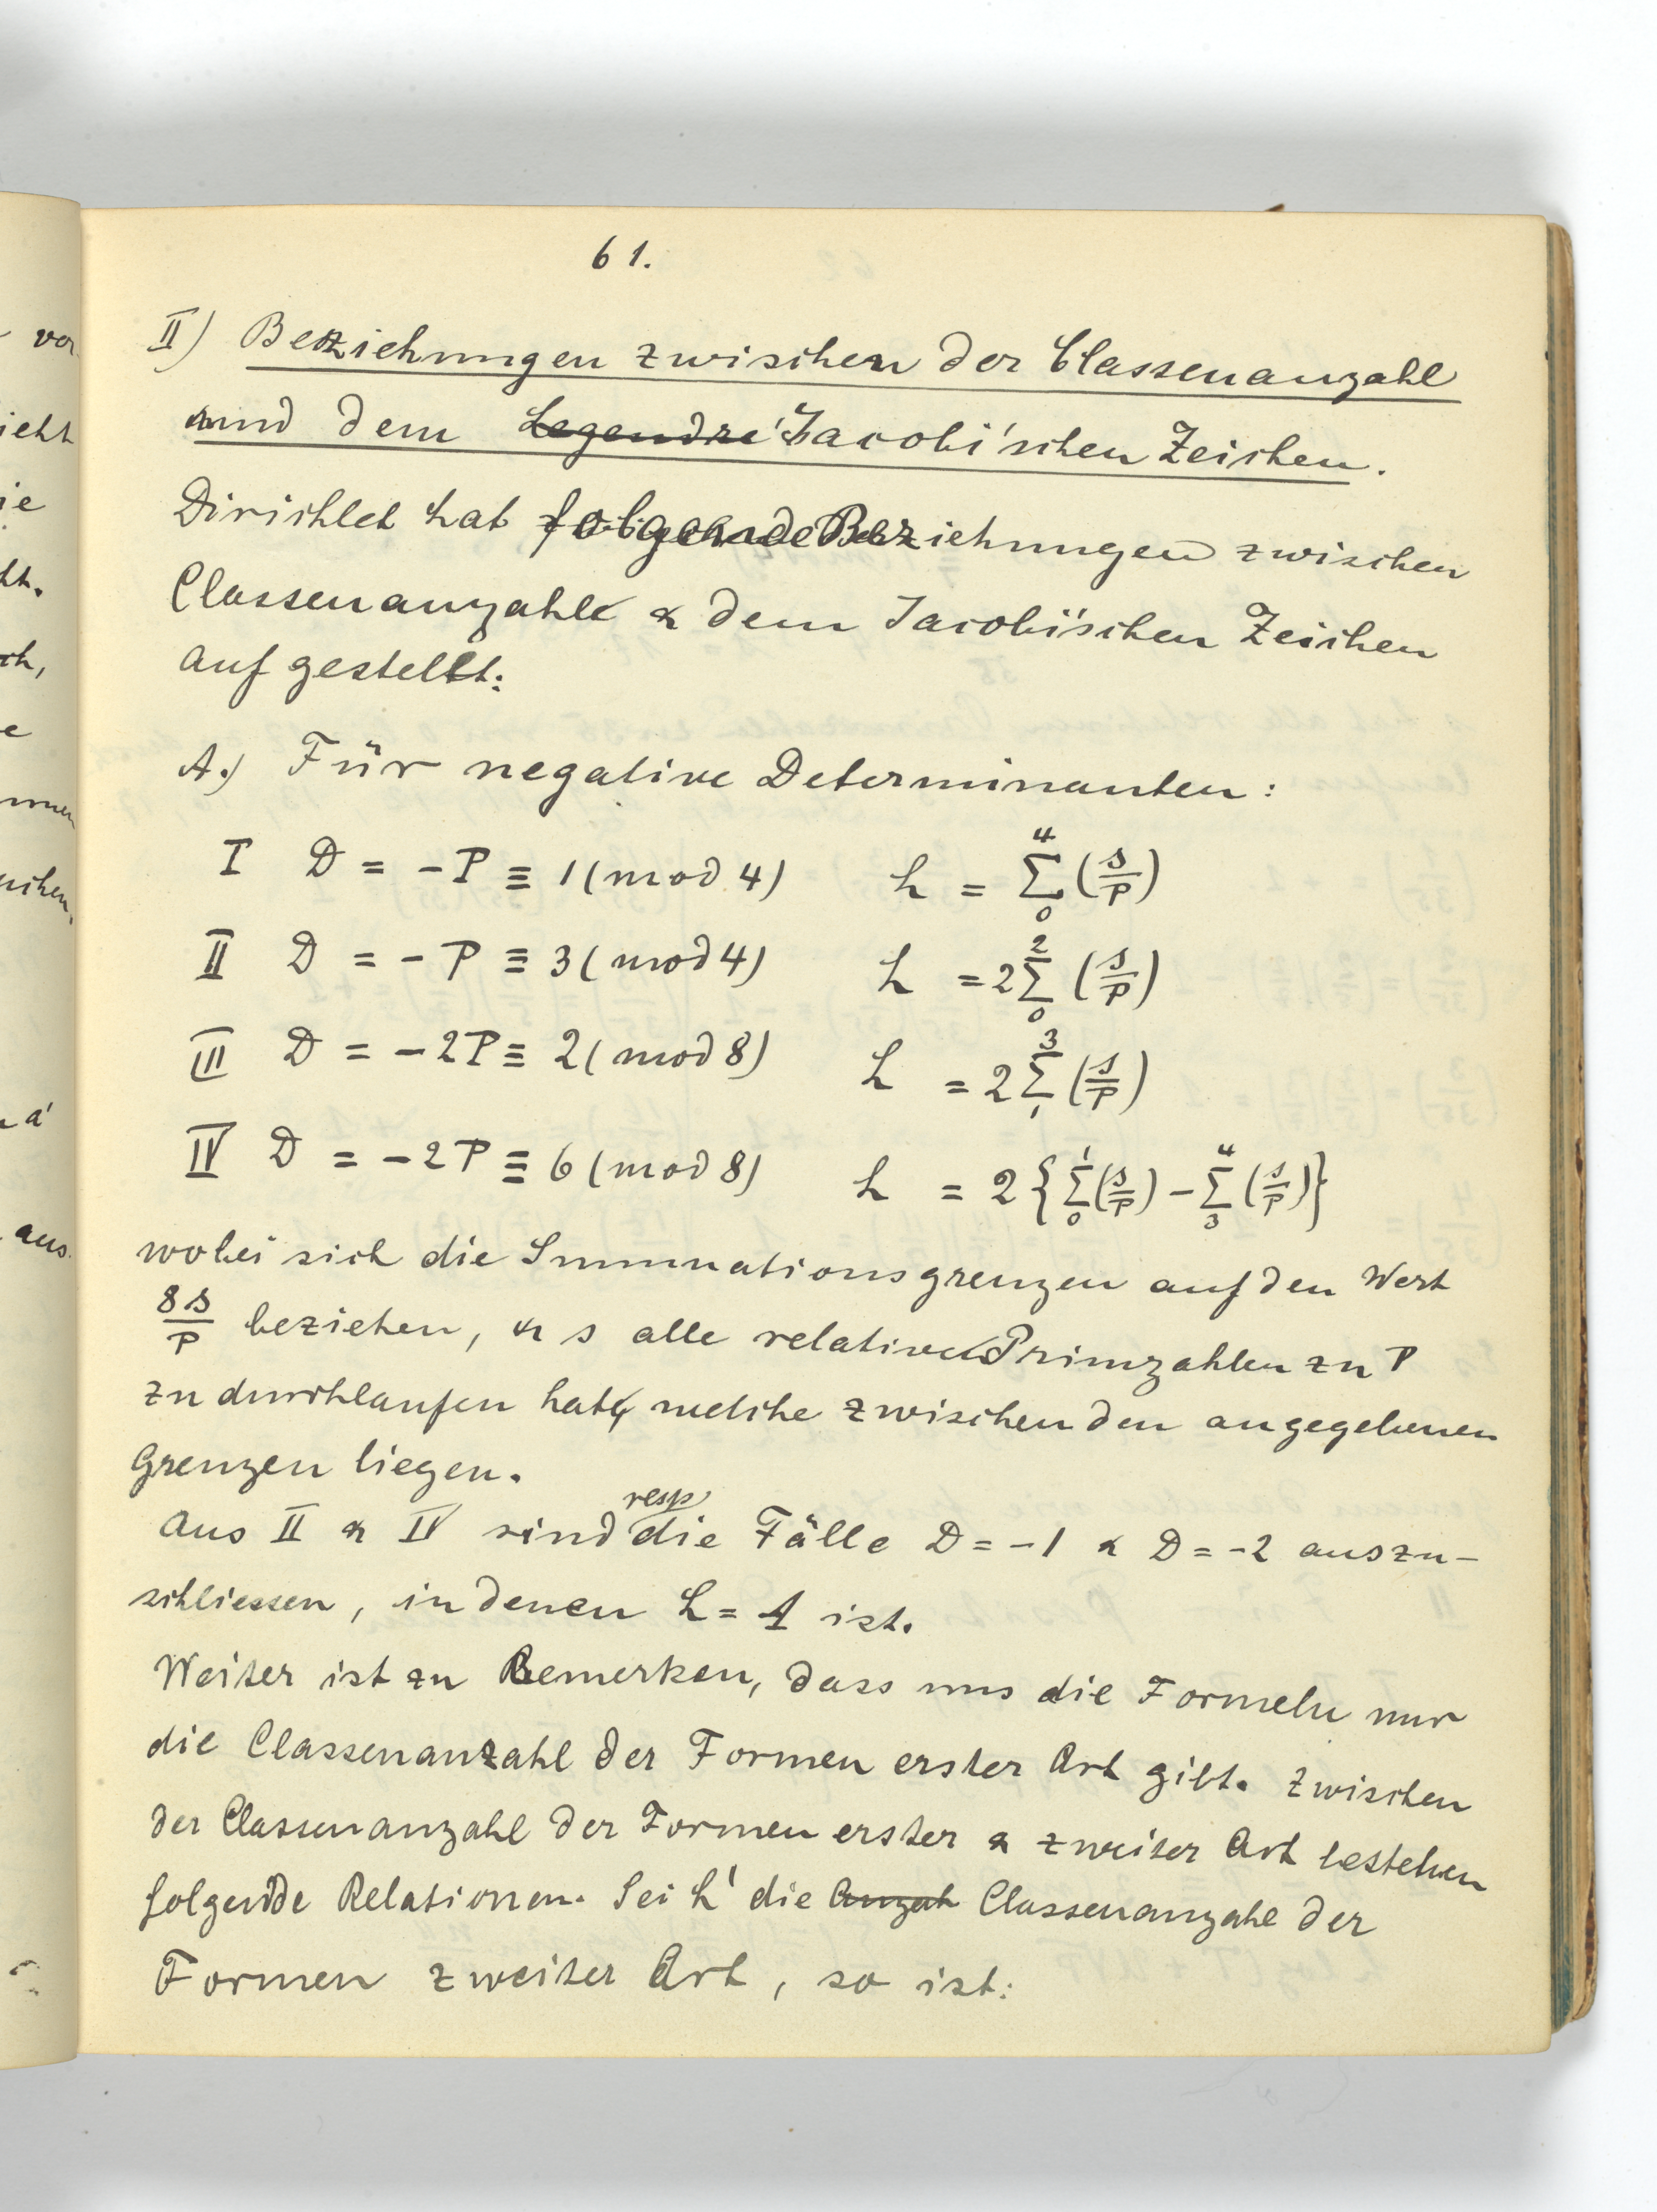 61.
II) Beziehungen zwischen der Classenanzahl
und dem Legendre' Jacobi'schen Zeichen.
Dirichlet hat folgende Beziehungen zwischen
Classenanzahl & dem Jacobi'schen Zeichen
aufgestellt:
A.) Für negative Determinanten:
I D = -P ≡ 1 (mod 4) h = \sum_0^4 (s/P)
II D = -P ≡ 3 (mod 4) h = 2 \sum_0^2 (s/P)
III D = -2P ≡ 2 (mod 8) h = 2 \sum_1^3 (s/P)
IV D = -2P ≡ 6 (mod 8) h = 2 { \sum_0^1 (s/P) - \sum_3^4 (s/P) }
wobei sich die Summationsgrenzen auf den Wert
8s/P beziehen, & s alle relativen Primzahlen zu P
zu durchlaufen hat, welche zwischen den angegebenen
Grenzen liegen.
Aus II & IV sind resp die Fälle D = -1 & D = -2 auszu-
schliessen, in denen h = 1 ist.
Weiter ist zu Bemerken, dass uns die Formeln nur
die Classenanzahl der Formen erster Art gibt. Zwischen
der Classenanzahl der Formen erster & zweiter Art bestehen
folgende Relationen. Sei h' die Anzah Classenanzahl der
Formen zweiter Art, so ist:
vor
ieht
ie
ht.
ch,
e
aus.